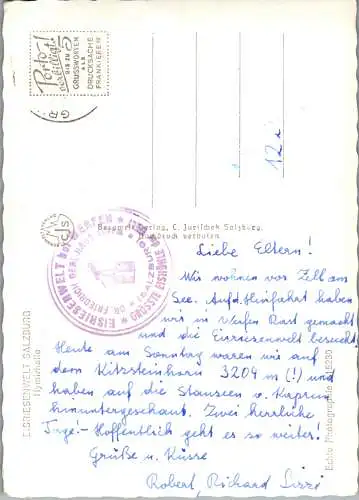 Porto-
verbilligt!
BIS ZU 5
GRUSSWORTEN
ALS
DRUCKSACHE
FRANKIEREN
GR
12a
cjs
Bergwelt-Verlag, C. Jurischek Salzburg.
Nachdruck verboten.
EISRIESENWELT bei WERFEN
GRÖSSTE EISHÖHLE DER WELT
DR. FRIEDRICH OEDL HAUS
EISRIESENWELT SALZBURG
Hymirhalle
Echte Photographie
Liebe Eltern!
Wir wohnen vor Zell am
See. Auf d. Hinfahrt haben
wir in Werfen Rast gemacht
und die Eisriesenwelt besucht.
Heute am Sonntag waren wir auf
dem Kitzsteinhorn 3204 m (!) und
haben auf die Stauseen v. Kaprun
hinuntergeschaut. Zwei herrliche
Tage! - Hoffentlich geht es so weiter!
Grüße u. Küsse
Robert Richard Sissi